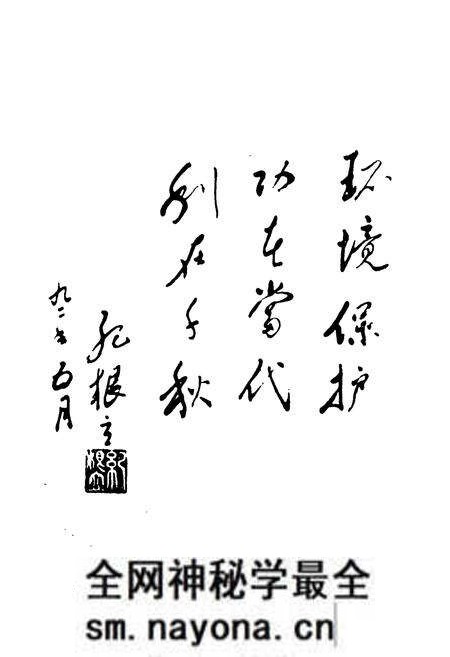 环境保护
功在當代
利在千秋
纪根立
九二年五月
全网神秘学最全
sm.nayona.cn